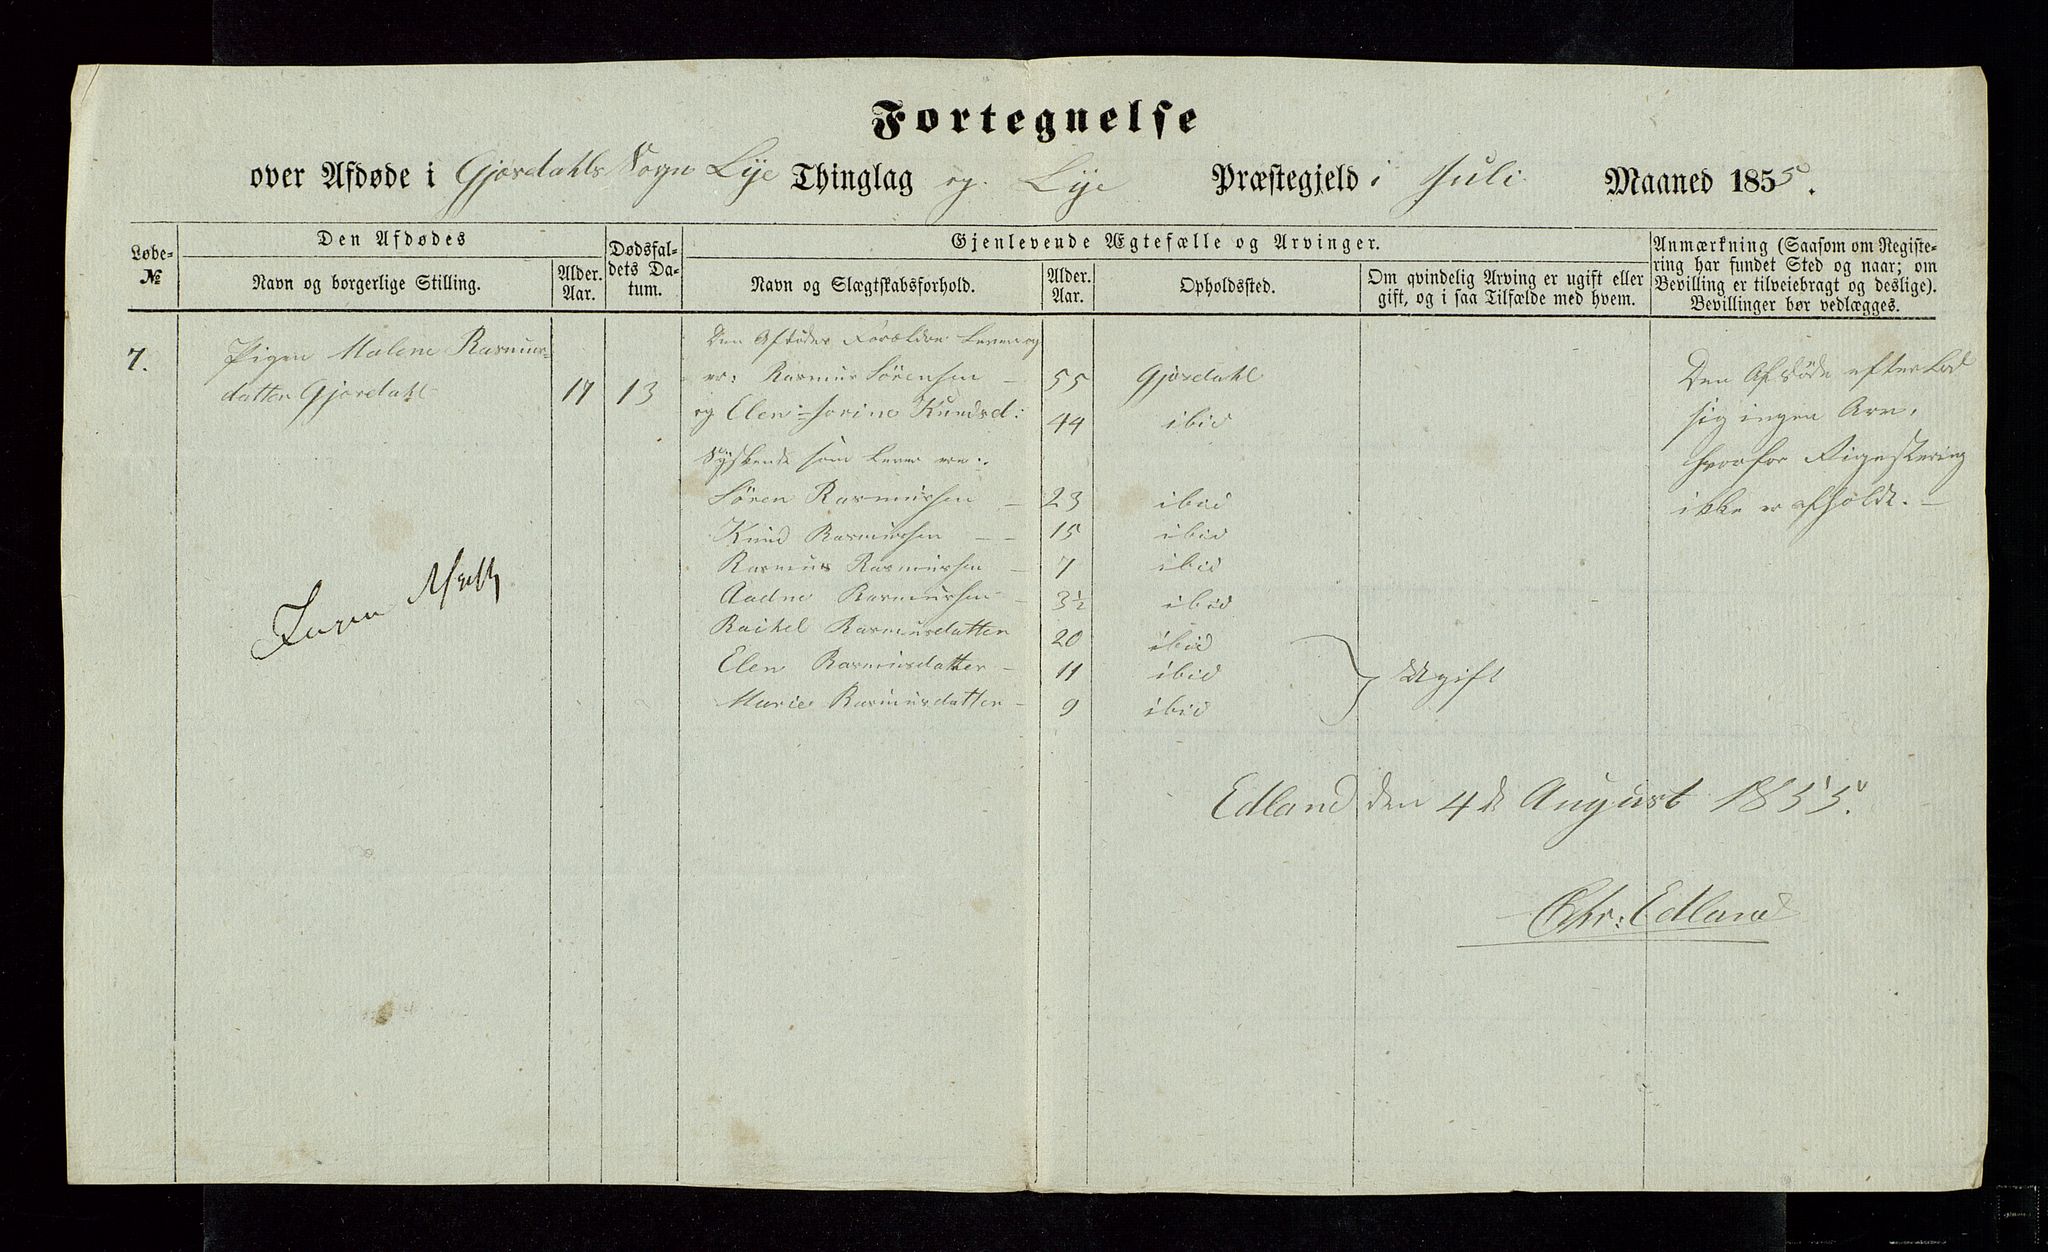 Fortegnelse
over Afdøde i Gjesdahls Sogn Lye Thinglag og Lye Præstegjeld i Juli Maaned 1855.
Løbe-
№
Den Afdødes
Navn og borgerlige Stilling.
Alder.
Aar.
Dødsfal-
dets Da-
tum.
Gjenlevende Ægtefælle og Arvinger.
Navn og Slægtskabsforhold.
Alder.
Aar.
Opholdssted.
Om qvindelig Arving er ugift eller
gift, og i saa Tilfælde med hvem.
Anmærkning (Saasom om Registe-
ring har fundet Sted og naar; om
Bevilling er tilveiebragt og deslige).
Bevillinger bør vedlægges.
7.
Pigen Malene Rasmus-
datter Gjesdahl 17 13
Den Afdødes Forældre Lever og
er: Rasmus Sörensen 55 Gjesdahl
og Elen Serine Knudsd: 44 ibid
Sÿskende som Lever ere:
Sören Rasmussen 23 ibid
Knud Rasmussen 15 ibid
Rasmus Rasmussen 7 ibid
Aadne Rasmussen 3½ ibid
Rachel Rasmusdatter 20 ibid
Elen Rasmusdatter 11 ibid
Marie Rasmusdatter 9 ibid
Ugift
Den Afdøde efterlod
sig ingen Arv,
hvorfor Rigestering
ikke er afholdt.
Ingen
Edland den 4de August 1855.
Chr: Edland